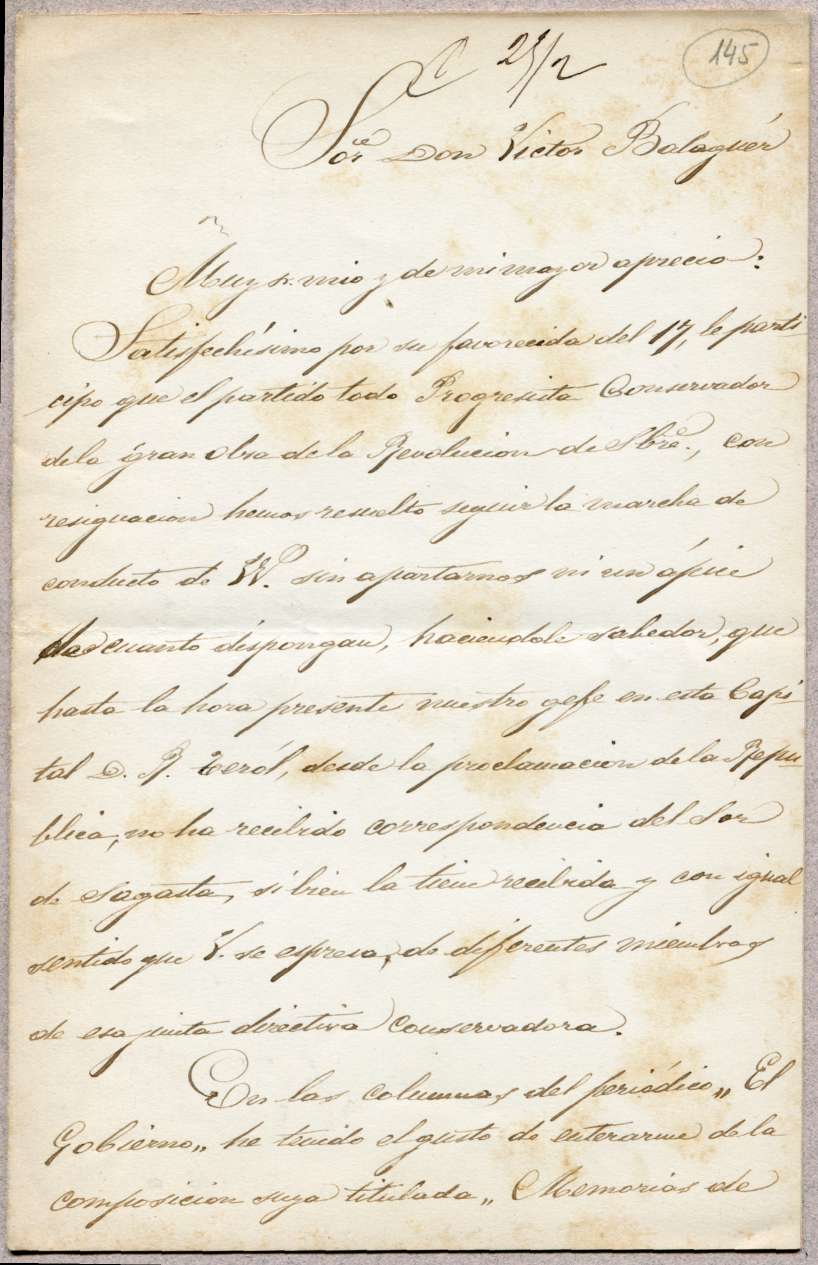 C 25/2
145
Sor.ᵉ Don Victor Balaguér
Muy sr. mio y de mi mayor aprecio:
Satisfechísimo por su favorecida del 17, le parti-
cipo que el partido todo Progresista Conservador
de la gran obra de la Revolucion de Sbre., con
resignacion hemos resuelto seguir la marcha de
conducta de VV. sin apartarnos ni un ápice
de cuanto dispongan, haciendole sabedor, que
hasta la hora presente nuestro gefe en esta Capi-
tal D. R. Teról, desde la proclamacion de la Repu-
blica, no ha recibido correspondencia del Sor
de Sagasta, si bien la tiene recibida y con igual
sentido que V. se espresa, de diferentes miembros
de esa junta directiva conservadora.
En las columnas del periódico „ El
Gobierno„ he tenido el gusto de enterarme de la
composicion suya titulada „ Memorias de